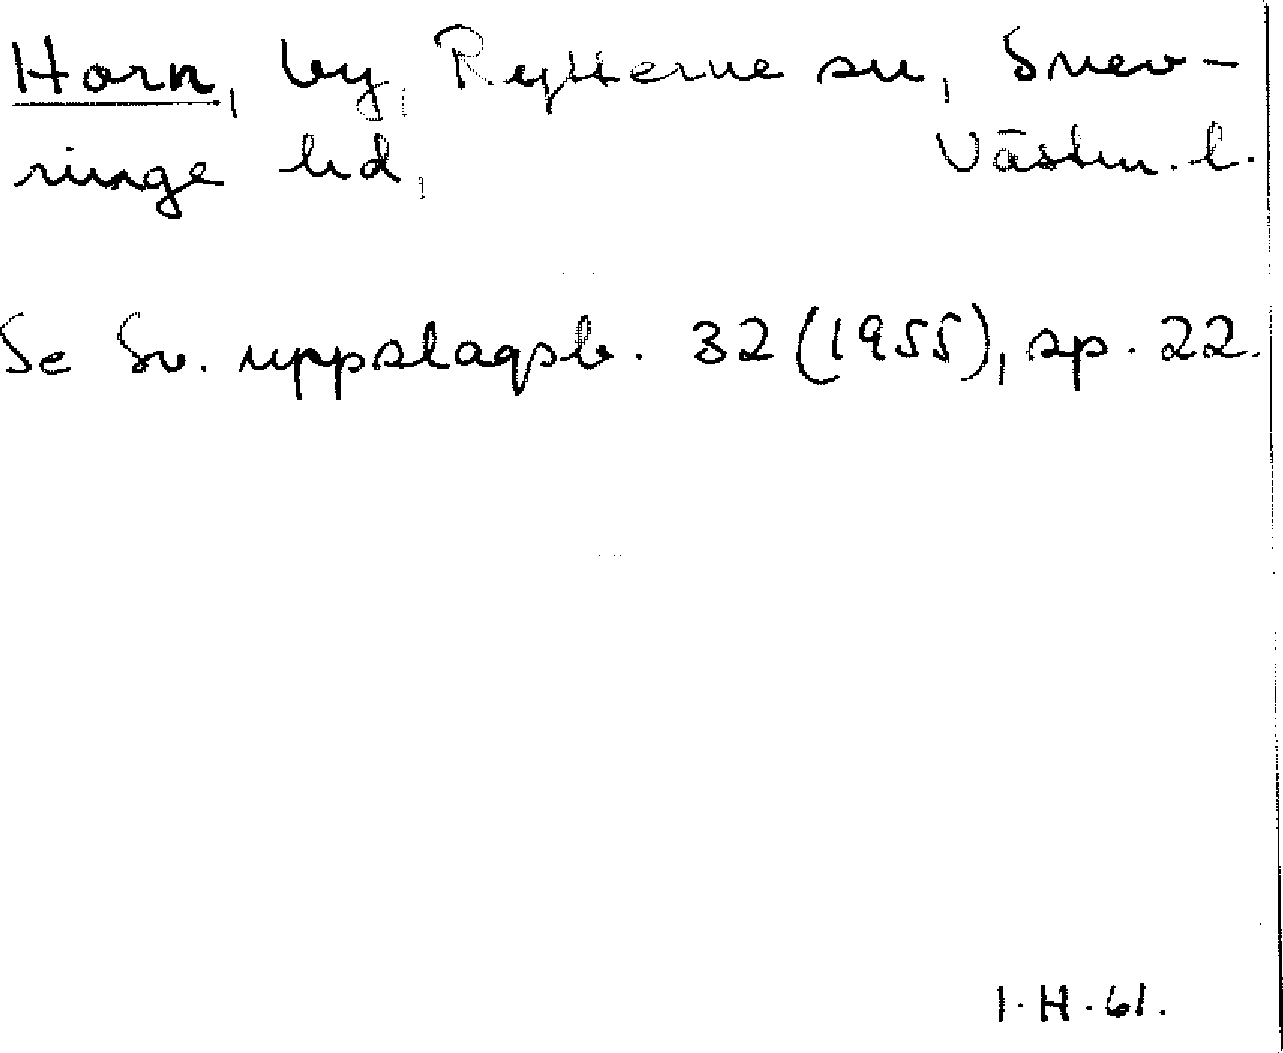 Horn, by, Rytterne sn, Snev-
ringe hd, Västm. l.
Se Sv. uppslagsb. 32 (1955), sp. 22.
I.H.61.